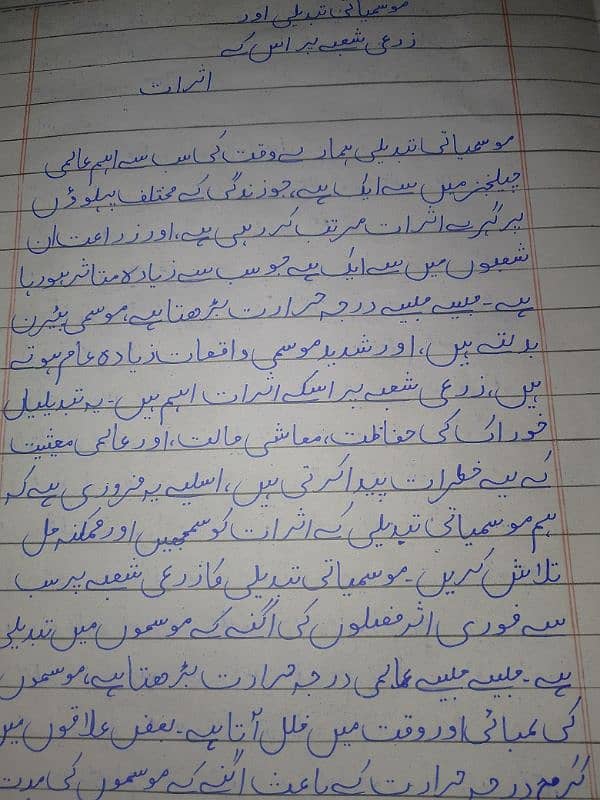 موسمیاتی تبدیلی اور
زرعی شعبہ پر اس کے
اثرات
موسمیاتی تبدیلی ہمارے وقت کی سب سے اہم عالمی
چیلنجز میں سے ایک ہے، جو زندگی کے مختلف پہلوؤں
پر گہرے اثرات مرتب کر رہی ہے، اور زراعت ان
شعبوں میں سے ایک ہے جو سب سے زیادہ متاثر ہو رہا
ہے۔ جیسے جیسے درجہ حرارت بڑھتا ہے، موسمی پیٹرن
بدلتے ہیں، اور شدید موسمی واقعات زیادہ عام ہوتے
ہیں، زرعی شعبہ پر اسکے اثرات اہم ہیں۔ یہ تبدیلیاں
خوراک کی حفاظت، معاشی حالت، اور عالمی معیثیت
کے لیے خطرات پیدا کرتی ہیں، اسلیے یہ ضروری ہے کہ
ہم موسمیاتی تبدیلی کے اثرات کو سمجھیں اور ممکنہ حل
تلاش کریں۔ موسمیاتی تبدیلی کا زرعی شعبہ پر سب
سے فوری اثر فصلوں کی اگنے کے موسموں میں تبدیلی
ہے۔ جیسے جیسے عالمی درجہ حرارت بڑھتا ہے، موسموں
کی لمبائی اور وقت میں خلل آتا ہے۔ بعض علاقوں میں
گرم درجہ حرارت کے باعث اگنے کے موسموں کی مدت